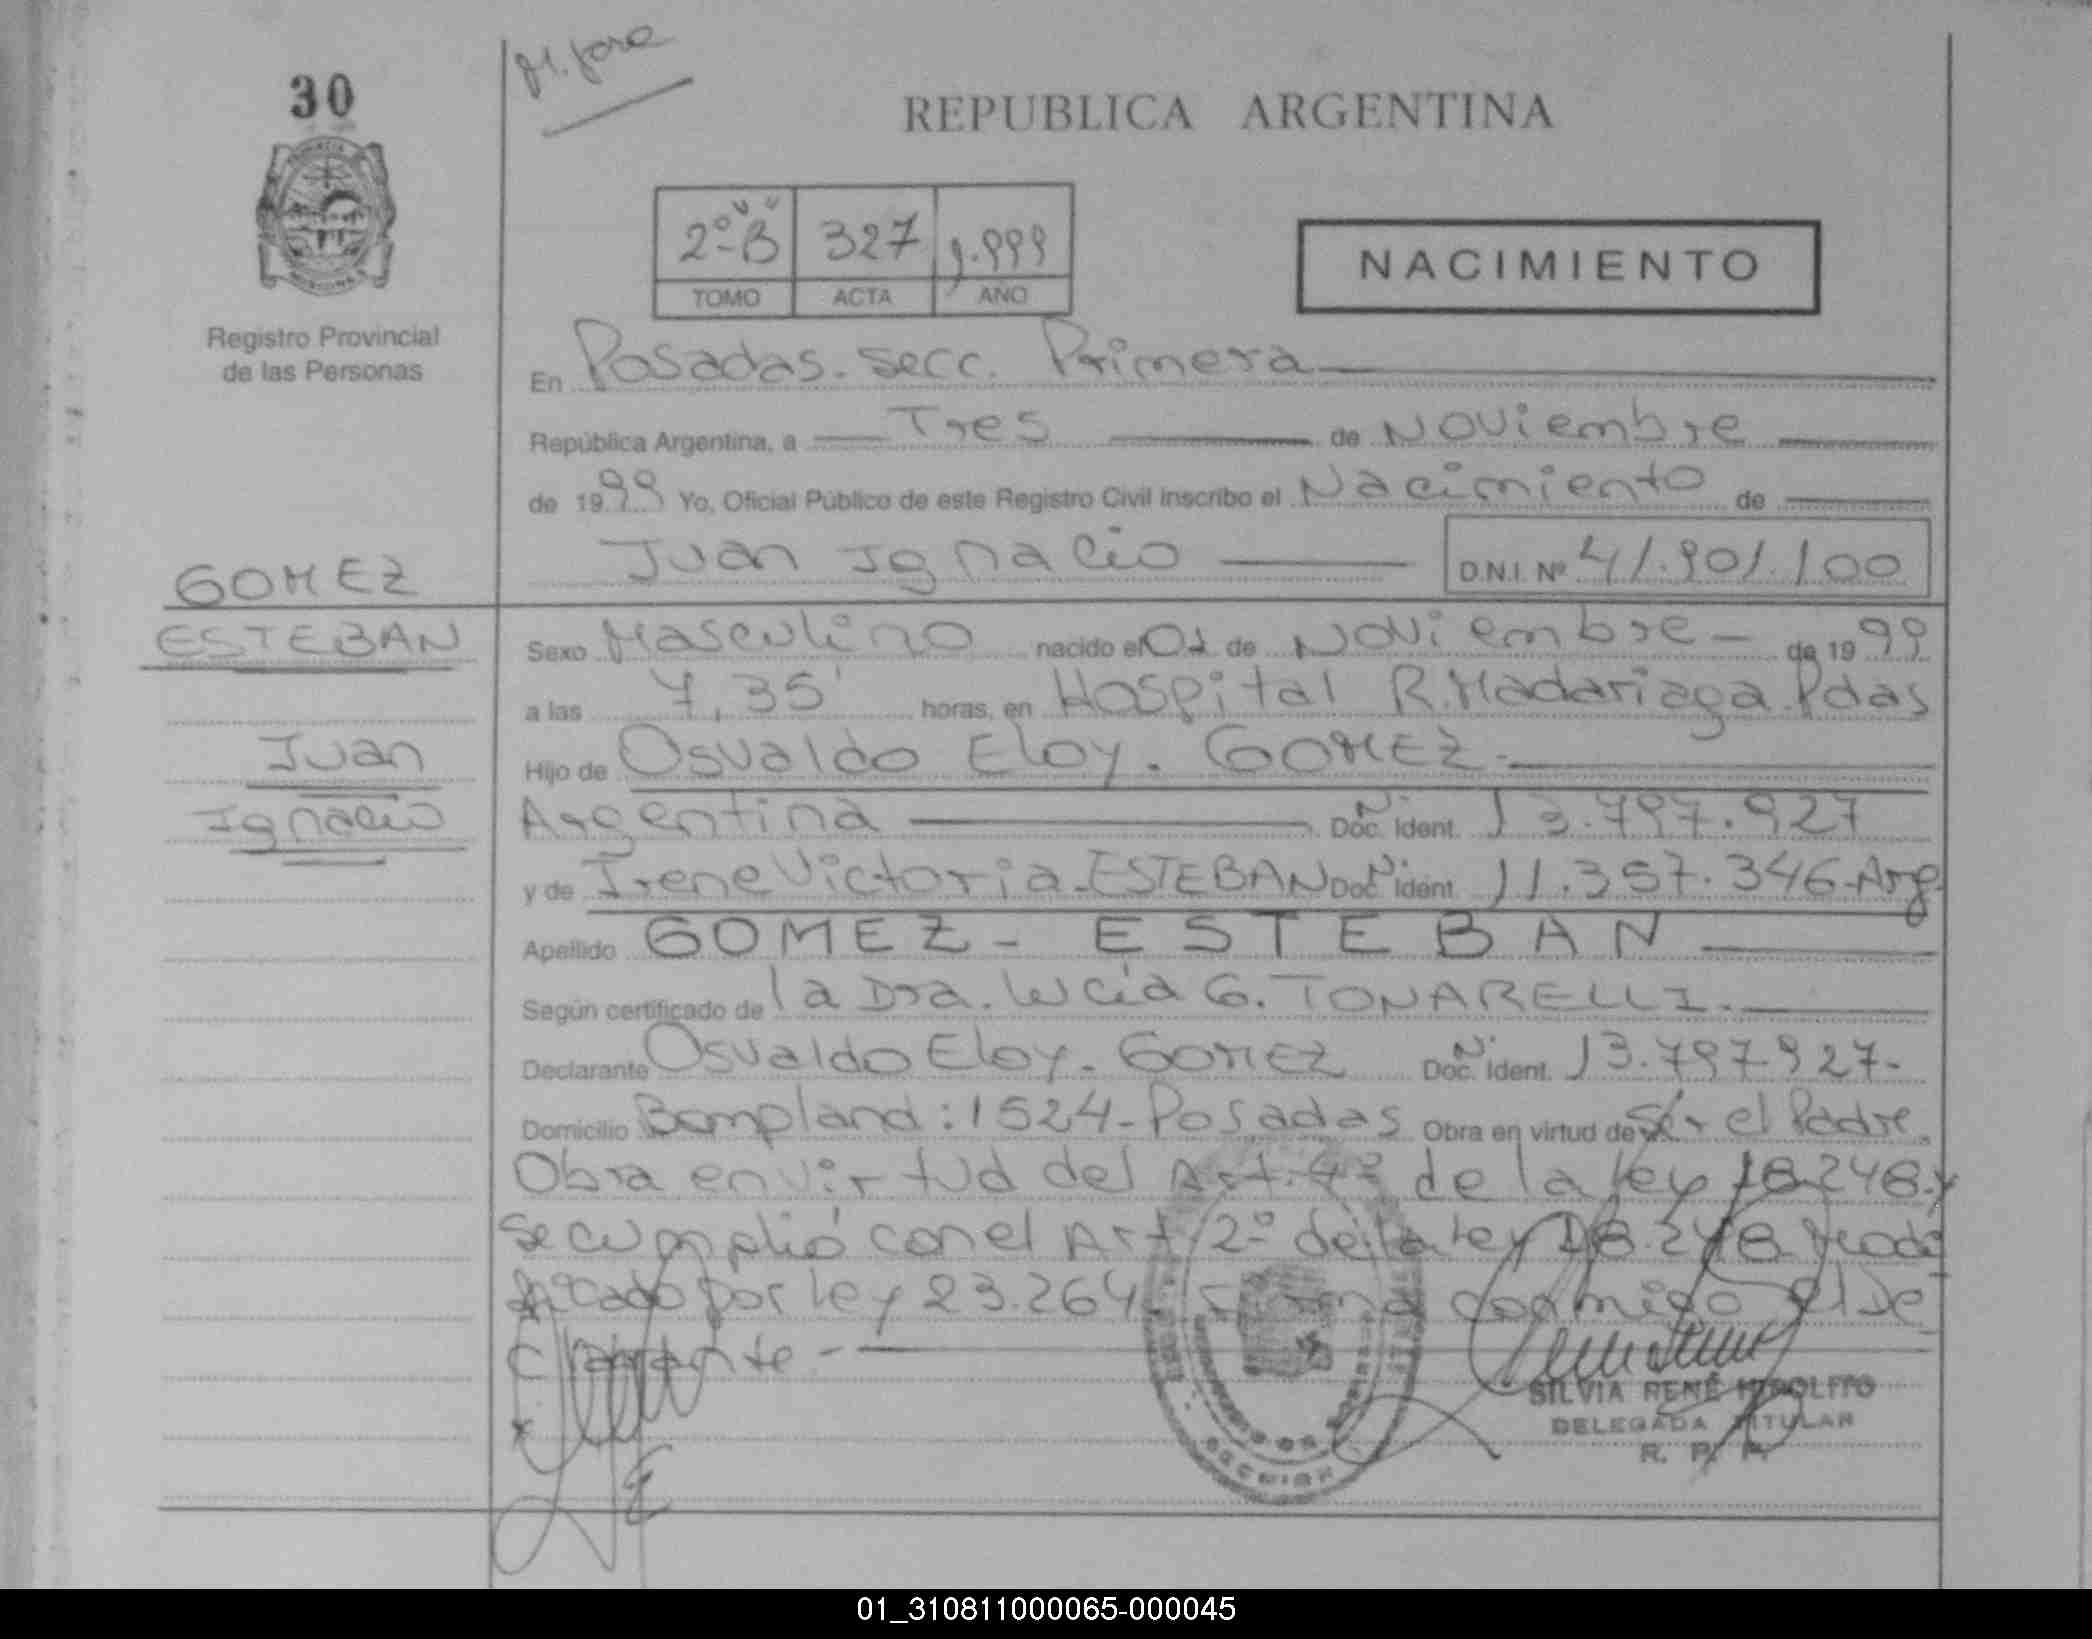 30
M. José
REPUBLICA ARGENTINA
2º B 327 1.999
TOMO ACTA AÑO
NACIMIENTO
Registro Provincial
de las Personas
En Posadas. Secc. Primera
República Argentina, a Tres de Noviembre
de 1999 Yo, Oficial Público de este Registro Civil inscribo el Nacimiento de
Juan Ignacio D.N.I. Nº 41.901.100
GOMEZ
ESTEBAN
Juan
Ignacio
Sexo Masculino nacido el 01 de Noviembre de 1999
a las 7,35' horas, en Hospital R. Madariaga. Pdas
Hijo de Osvaldo Eloy. GOMEZ.
Argentina Doc. Ident. 13.797.927
y de Irene Victoria. ESTEBAN Doc. Ident. 11.357.346-Arg
Apellido GOMEZ - ESTEBAN
Según certificado de la Dra. Lucía G. TONARELLI.
Declarante Osvaldo Eloy. GOMEZ Doc. Ident. 13.797.927-
Domicilio Bompland: 1524-Posadas Obra en virtud de ser el Padre.
Obra en virtud del Art. 4º de la ley 18.248. y
se cumplió con el Art. 2º de la ley 18.248 modi
ficado por ley 23.264. Firma conmigo el De
clarante -
SILVIA RENÉ HIPOLITO
DELEGADA TITULAR
R. P. P.
01_310811000065-000045